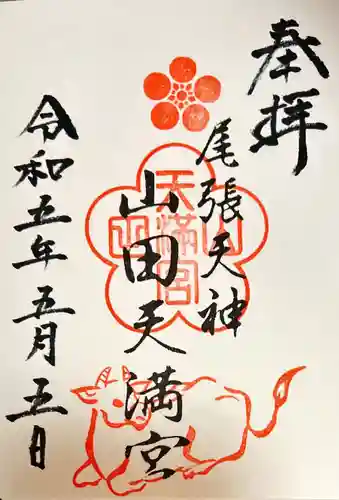 奉拝
尾張天神
山田天満宮
山田天満宮
令和五年五月五日